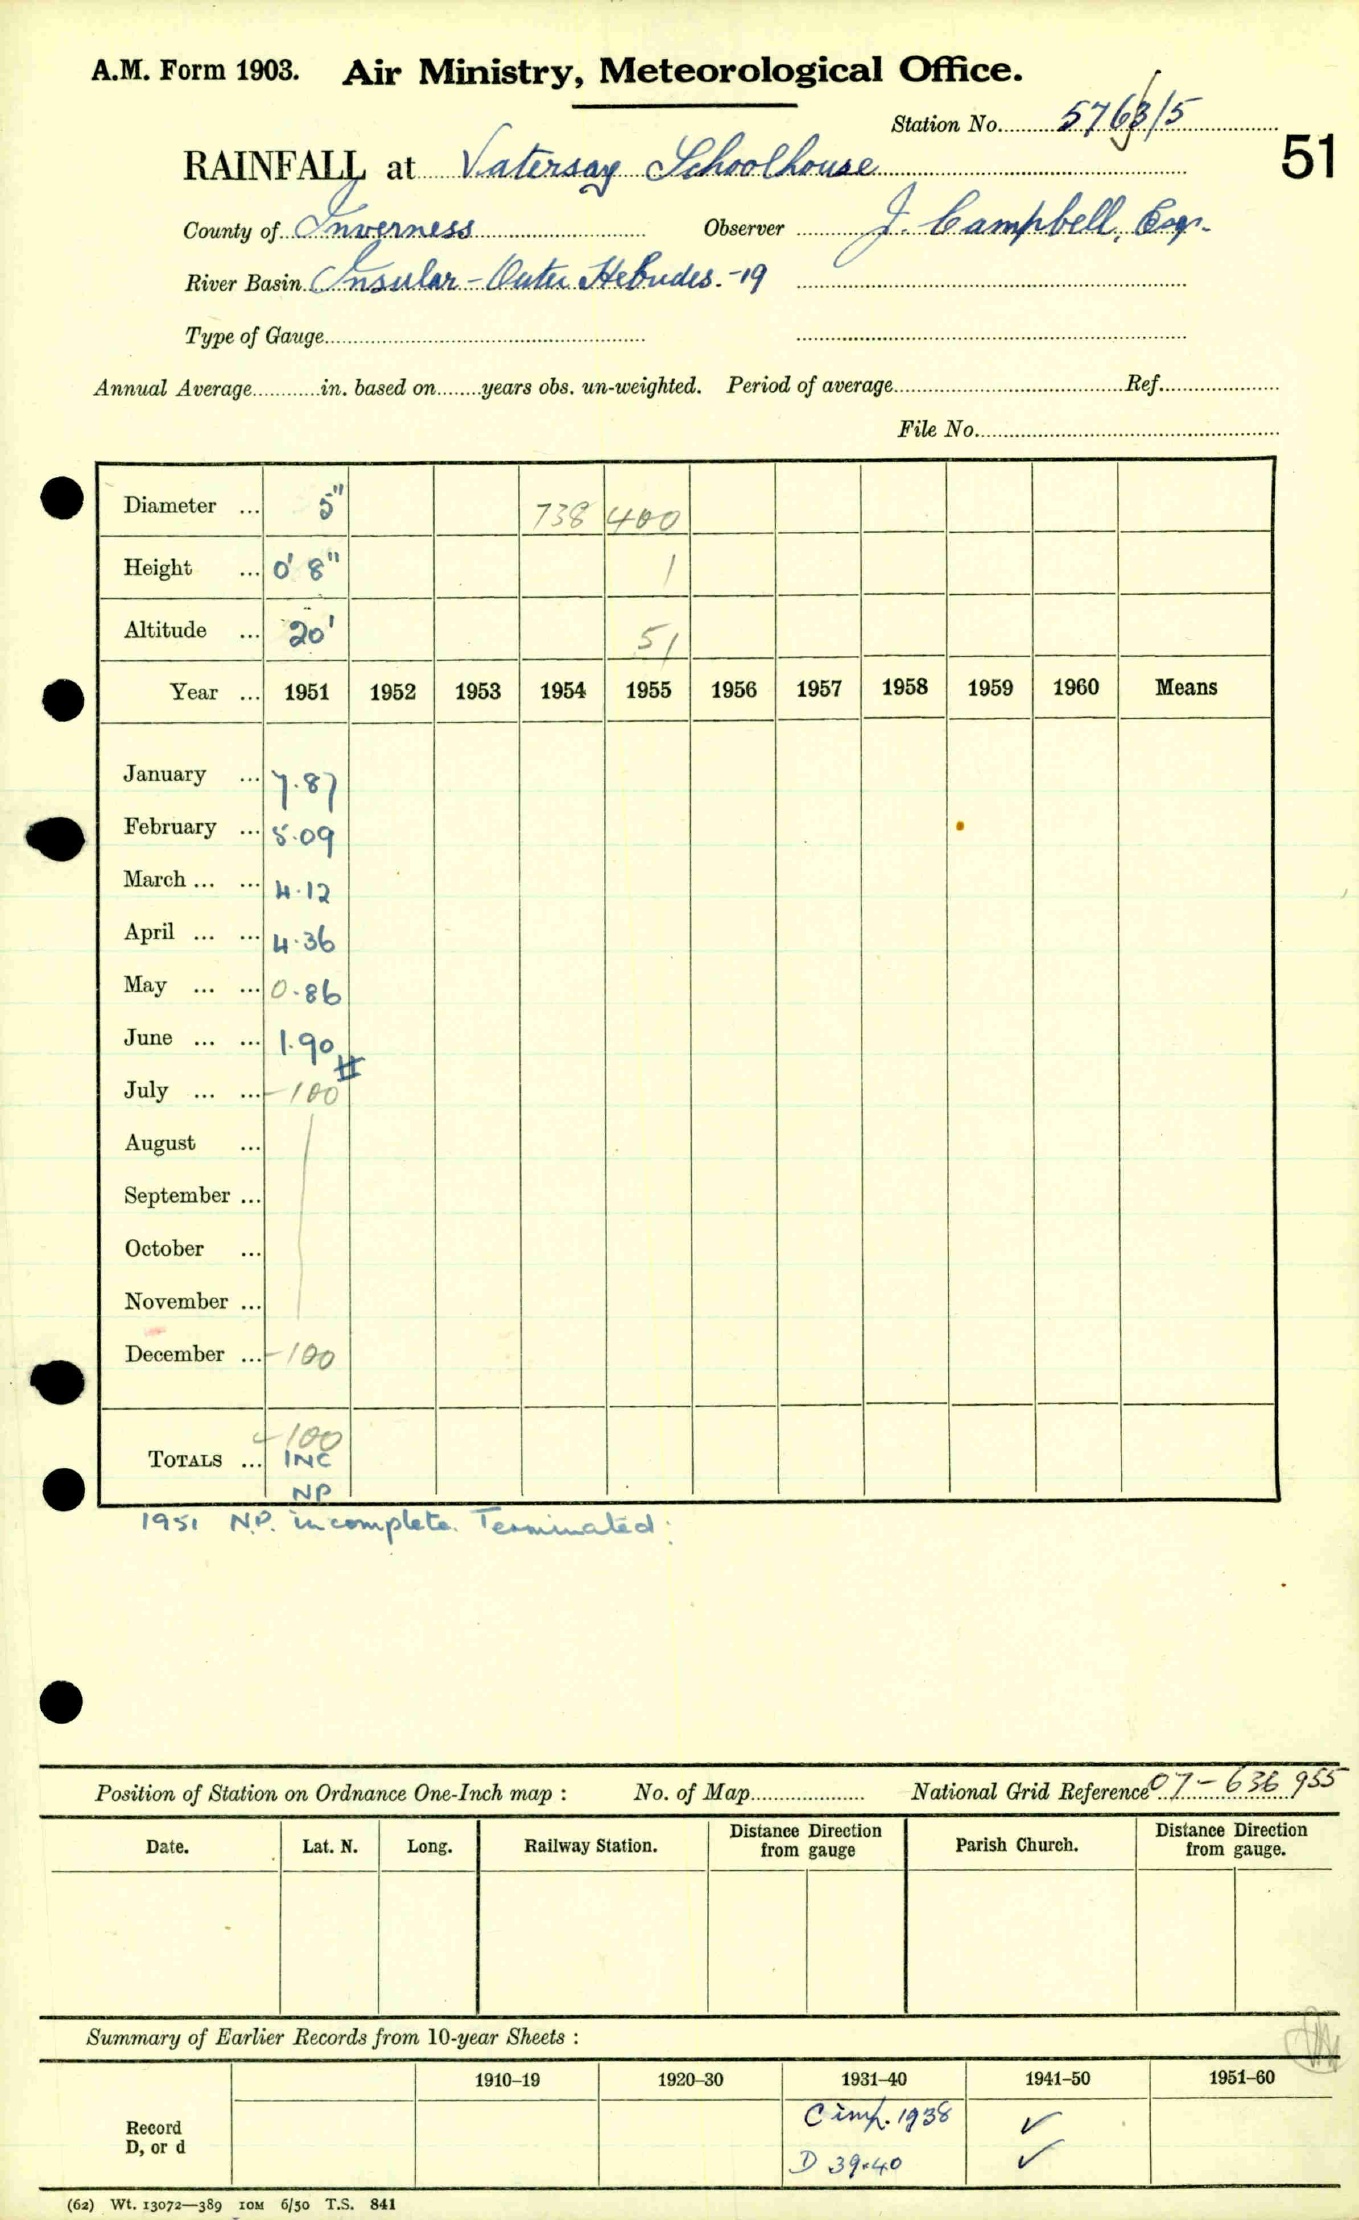 A.M. Form 1903. Air Ministry, Meteorological Office.
Station No. 5763/5
51
RAINFALL at Vatersay Schoolhouse
County of Inverness Observer J. Campbell, Esq.
River Basin Insular - Outer Hebrides. -19
Type of Gauge
Annual Average in. based on years obs. un-weighted. Period of average Ref.
File No.
Diameter ... 5" 738 400
Height ... 0' 8" 1
Altitude ... 20' 51
Year ... 1951 1952 1953 1954 1955 1956 1957 1958 1959 1960 Means
January ... 7.87
February ... 5.09
March ... ... 4.12
April ... ... 4.36
May ... ... 0.86
June ... ... 1.90
July ... ... -100
August ...
September ...
October ...
November ...
December ... -100
-100
TOTALS ... INC
NP
1951 N.P. incomplete. Terminated.
Position of Station on Ordnance One-Inch map : No. of Map National Grid Reference 07-636 955
Date. Lat. N. Long. Railway Station. Distance Direction from gauge Parish Church. Distance Direction from gauge.
Summary of Earlier Records from 10-year Sheets :
1910–19 1920–30 1931–40 1941–50 1951–60
Record C imp. 1938 ✓
D, or d D 39.40 ✓
(62) Wt. 13072—389 10M 6/50 T.S. 841